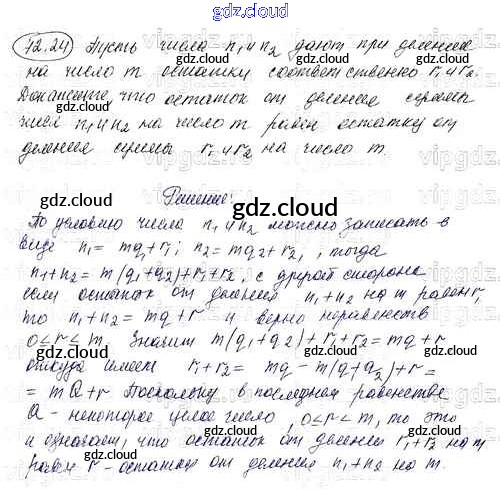 gdz.cloud
72.24 Пусть числа n₁ и n₂ дают при делении
на число m остатки соответственно r₁ и r₂.
Докажите, что остаток от деления суммы
чисел n₁ и n₂ на число m равен остатку от
деления суммы r₁ и r₂ на число m.
Решение:
По условию числа n₁ и n₂ можно записать в
виде n₁ = mq₁ + r₁; n₂ = mq₂ + r₂, тогда
n₁+n₂ = m(q₁+q₂)+r₁+r₂, с другой стороны
если остаток от деления n₁+n₂ на m равен r,
то n₁+n₂ = mq + r и верно неравенств
0 ≤ r < m. Значит m(q₁+q₂)+r₁+r₂ = mq+r
откуда имеем r₁+r₂ = mq - m(q₁+q₂)+r =
= mQ+r Поскольку в последнем равенстве
Q - некоторое целое число, 0 ≤ r < m, то это
и означает, что остаток от деления r₁+r₂ на m
равен r - остатку от деления n₁+n₂ на m.
gdz.cloud